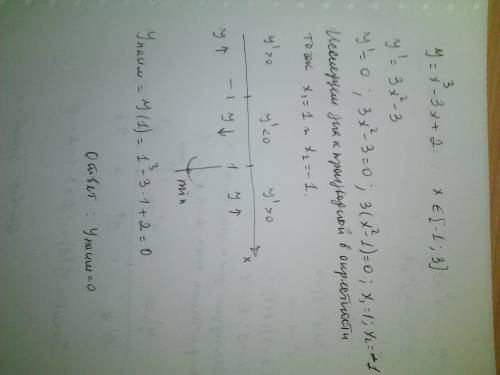 y = x³ - 3x + 2   x ∈ [-1; 3]
y' = 3x² - 3
y' = 0 ; 3x² - 3 = 0 ; 3(x² - 1) = 0 ; x₁ = 1 ; x₂ = -1
Исследуем знак производной в окрестности
точек x₁ = 1 и x₂ = -1.
y' > 0   y' < 0   y' > 0
x
y ↑   -1   y ↓   1   y ↑
min
y наим = y(1) = 1³ - 3·1 + 2 = 0
Ответ : y наим = 0